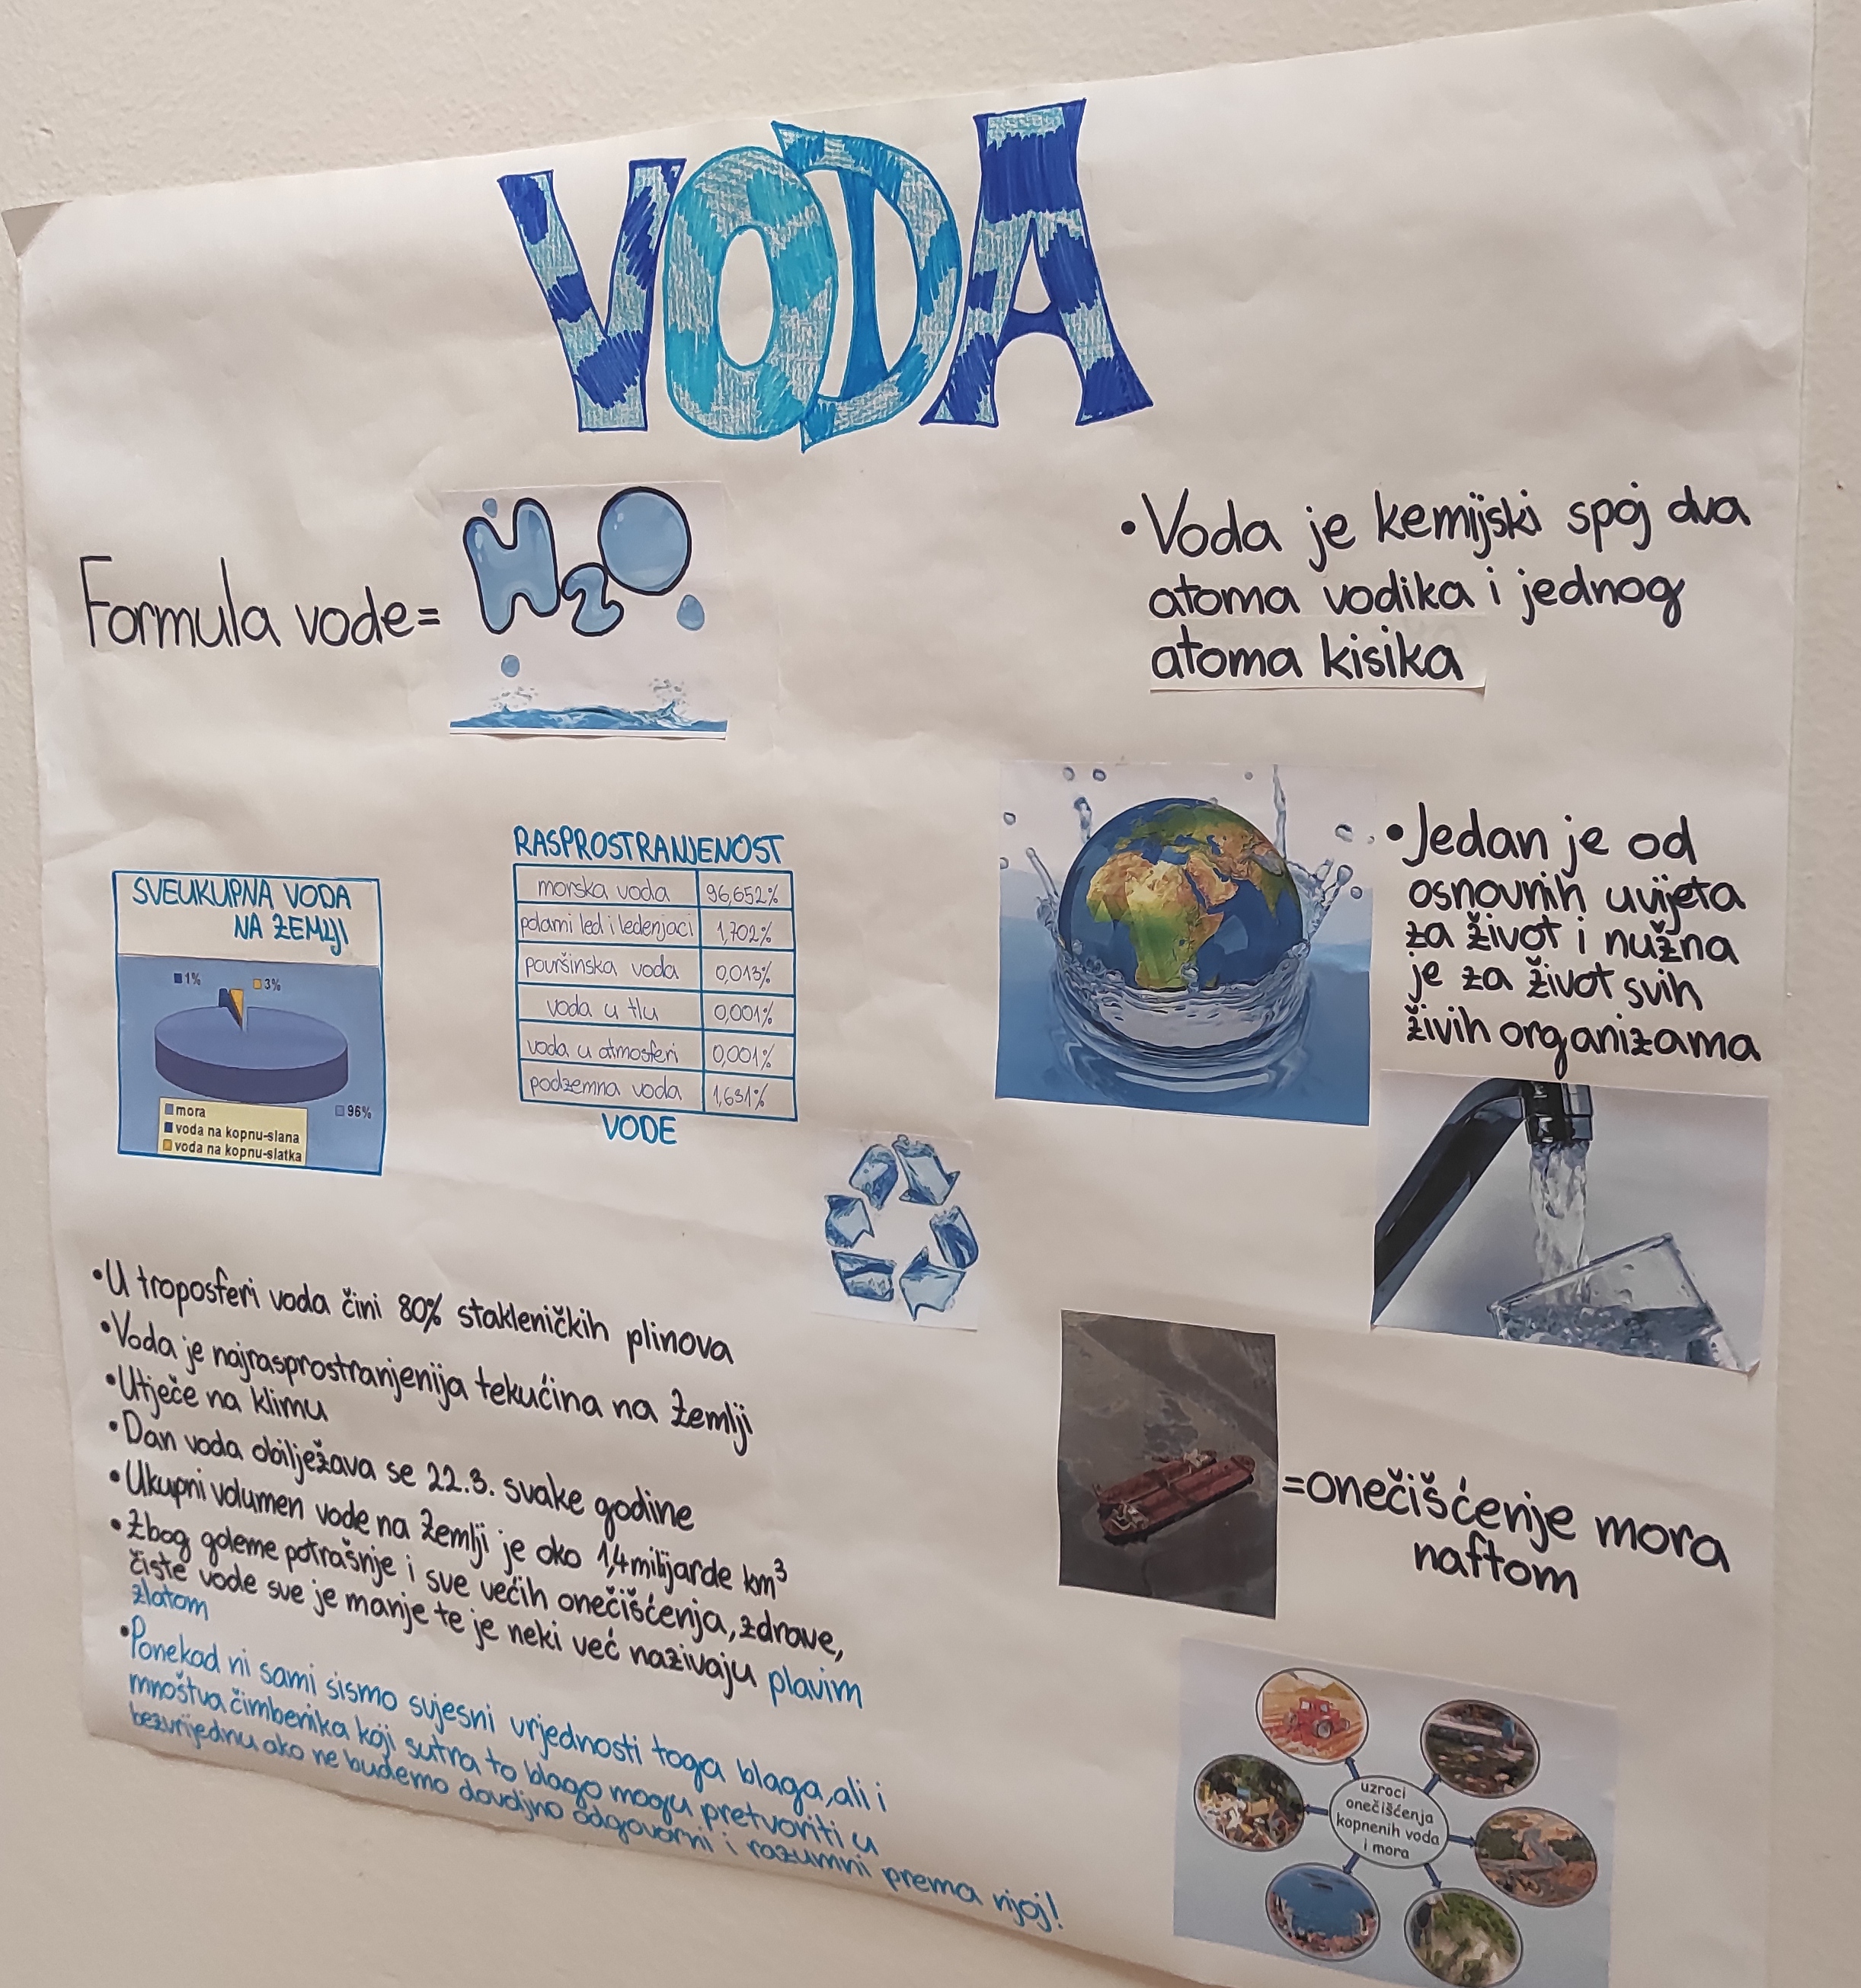 VODA
Formula vode=
H2O
•Voda je kemijski spoj dva
atoma vodika i jednog
atoma kisika
SVEUKUPNA VODA
NA ZEMLJI
1%
3%
96%
mora
voda na kopnu-slana
voda na kopnu-slatka
RASPROSTRANJENOST
morska voda 96,652%
polarni led i ledenjaci 1,702%
površinska voda 0,013%
voda u tlu 0,001%
voda u atmosferi 0,001%
podzemna voda 1,631%
VODE
•Jedan je od
osnovnih uvijeta
za život i nužna
je za život svih
živih organizama
•U troposferi voda čini 80% stakleničkih plinova
•Voda je najrasprostranjenija tekućina na Zemlji
•Utječe na klimu
•Dan voda obilježava se 22.3. svake godine
•Ukupni volumen vode na Zemlji je oko 1,4 milijarde km³
•Zbog goleme potrašnje i sve većih onečišćenja, zdrave,
čiste vode sve je manje te je neki već nazivaju plavim
zlatom
•Ponekad ni sami sismo svjesni vrjednosti toga blaga, ali i
mnoštva čimbenika koji sutra to blago mogu pretvoriti u
bezvrijednu ako ne budemo dovoljno odgovorni i razumni prema njoj!
=onečišćenje mora
naftom
uzroci
onečišćenja
kopnenih voda
i mora